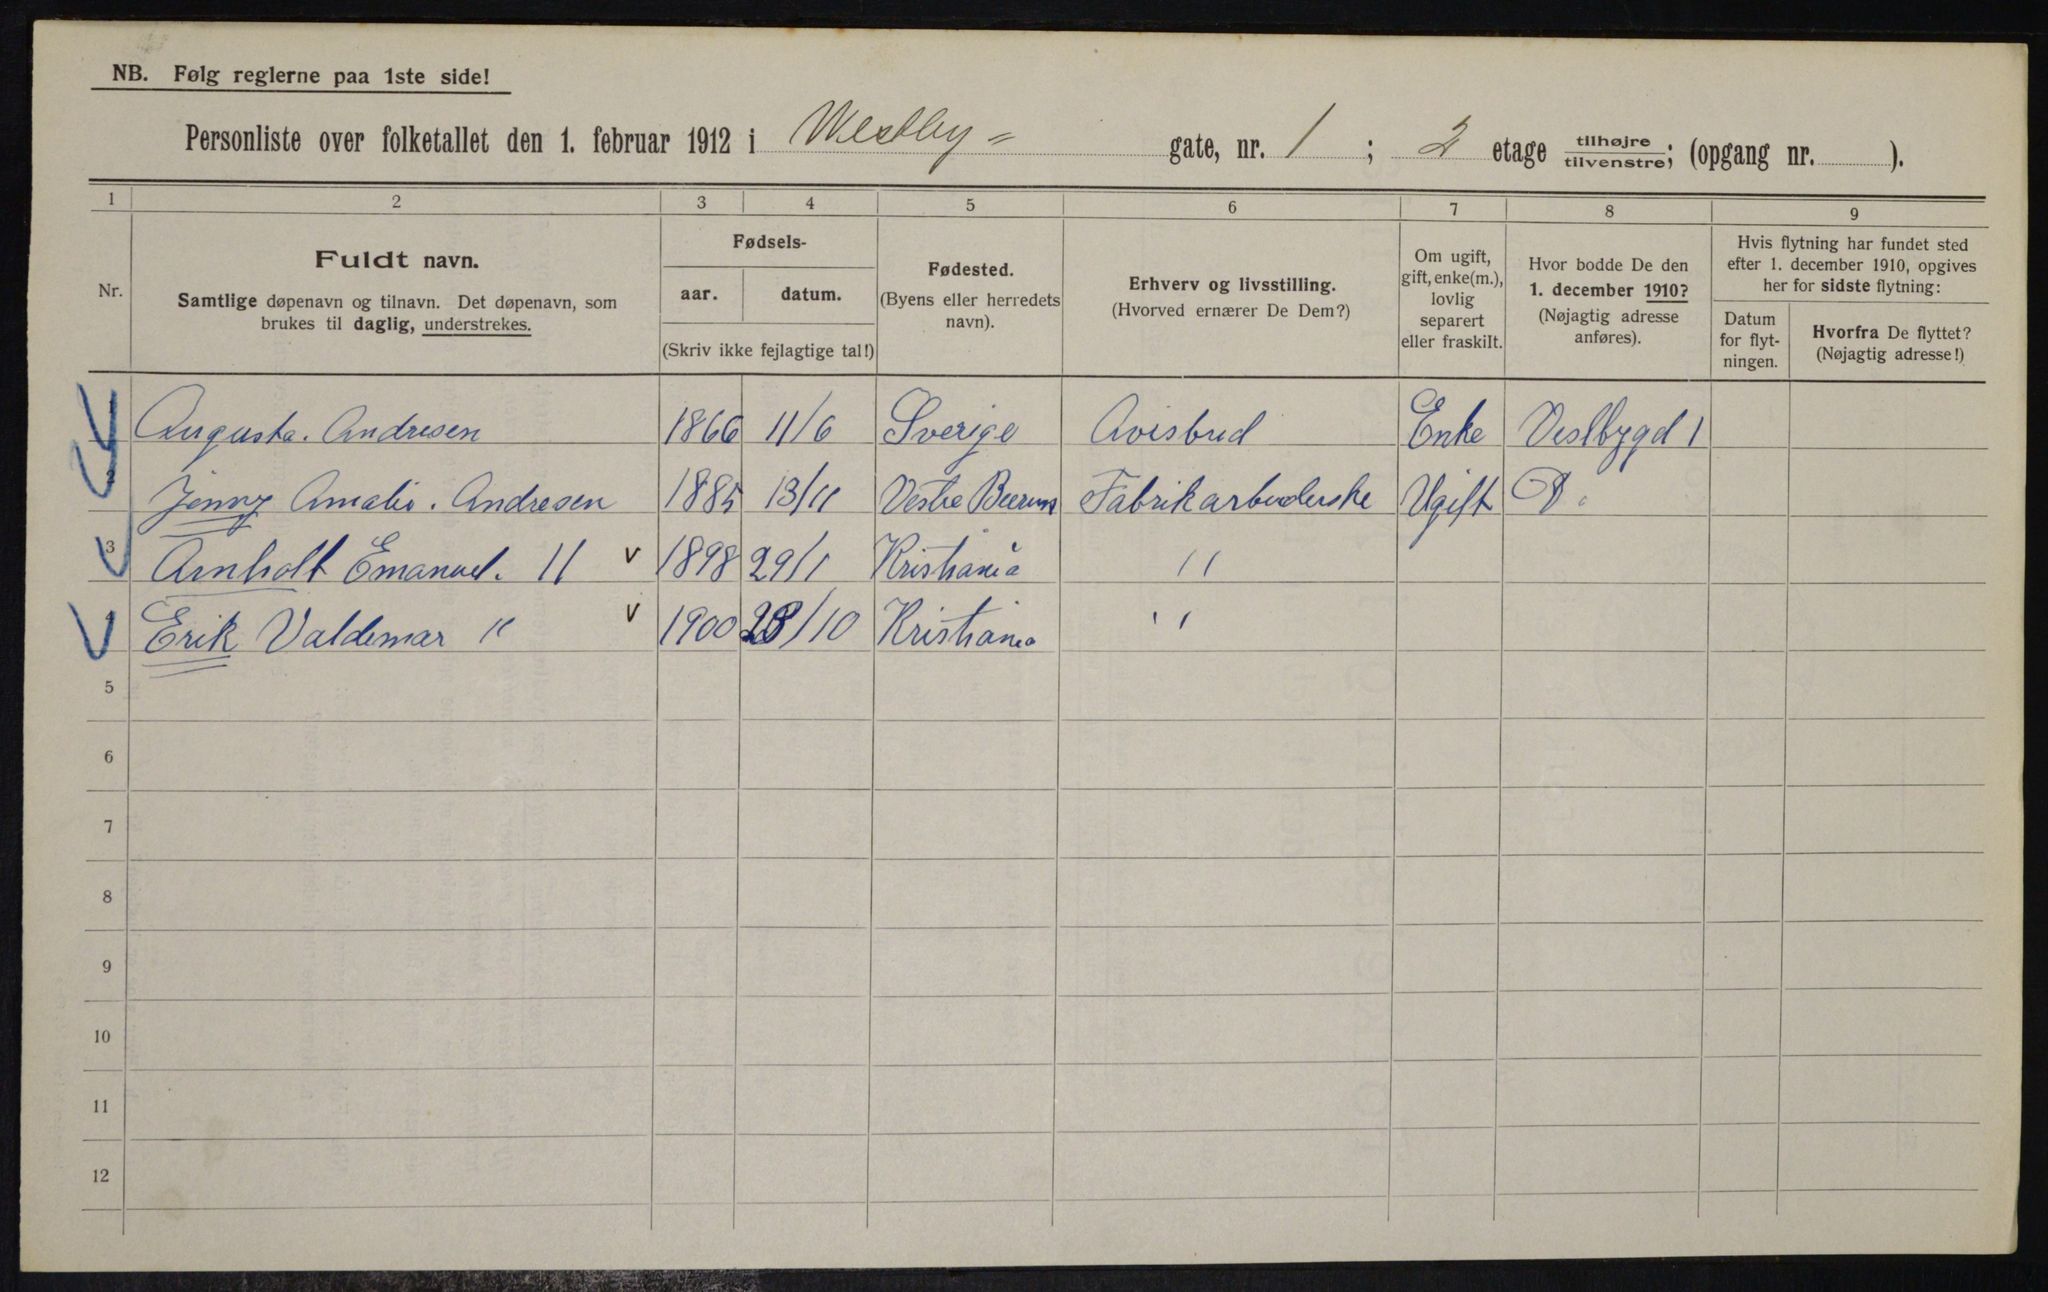 NB. Følg reglerne paa 1ste side!
Personliste over folketallet den 1. februar 1912 i Westby = gate, nr. 1 ; 2 etage tilhøjre/tilvenstre; (opgang nr. ).
1 2 3 4 5 6 7 8 9
Nr.
Fuldt navn.
Samtlige døpenavn og tilnavn. Det døpenavn, som
brukes til daglig, understrekes.
Fødsels-
aar. datum.
(Skriv ikke fejlagtige tal!)
Fødested.
(Byens eller herredets
navn).
Erhverv og livsstilling.
(Hvorved ernærer De Dem?)
Om ugift,
gift, enke(m.),
lovlig
separert
eller fraskilt.
Hvor bodde De den
1. december 1910?
(Nøjagtig adresse
anføres).
Hvis flytning har fundet sted
efter 1. december 1910, opgives
her for sidste flytning:
Datum
for flyt-
ningen.
Hvorfra De flyttet?
(Nøjagtig adresse!)
Augusta. Andresen 1866 11/6 Sverige Avisbud Enke Vestbygd 1
2 Jenny Amalie. Andresen 1885 13/11 Vestre Bærum Fabrikarbederske Ugift D.
3 Arnholt Emanuel. 11 v 1898 29/1 Kristiania 11
4 Erik Valdemar " v 1900 28/10 Kristiania "
5
6
7
8
9
10
11
12